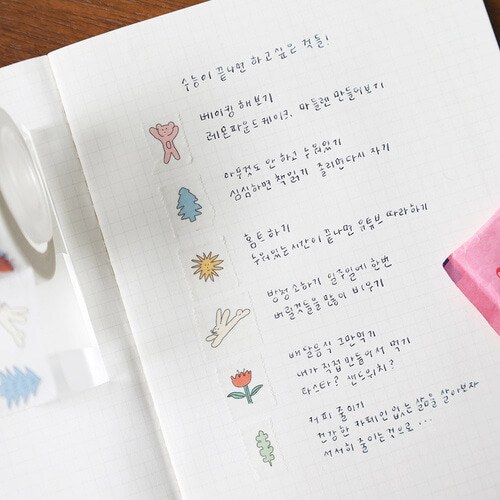 수능이 끝나면 하고싶은 것들!
베이킹 해보기
레몬파운드케이크, 마들렌 만들어보기
아무것도 안 하고 누워있기
심심하면 책읽기 졸리면 다시 자기
홈트하기
누워있는 시간이 끝나면 유튜브 따라하기
방청소하기 일주일에 한번
버릴것들을 많이 비우기
배달음식 그만먹기
내가 직접 만들어서 먹기
파스타? 샌드위치?
커피 줄이기
건강한 카페인 없는 삶을 살아보자
서서히 줄이는것으로...